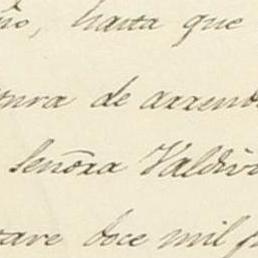 ño, hasta que
tura de arrend
Señora Valdivi
tare doce mil p